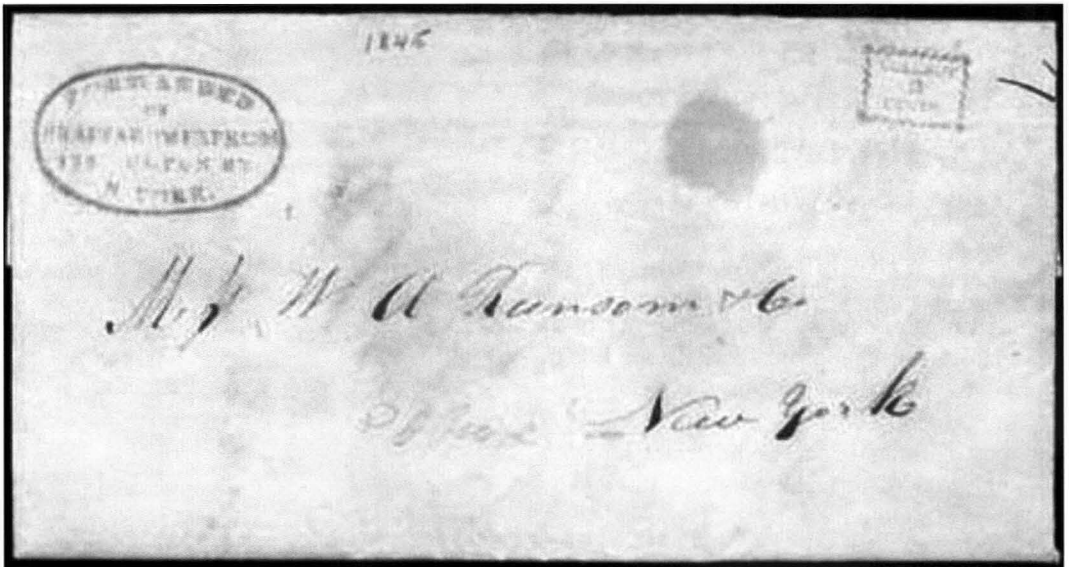 1845
FORWARDED
BY
ST.
N. YORK.
COLLECT
CENTS
Mess W A Ransom & Co
New York